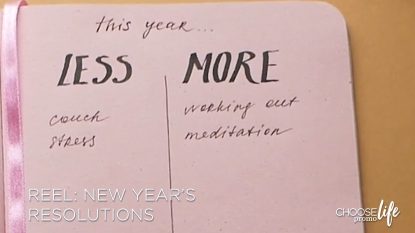 this year...
LESS
MORE
couch
stress
working out
meditation
REEL: NEW YEAR'S
RESOLUTIONS
CHOOSE life
promo